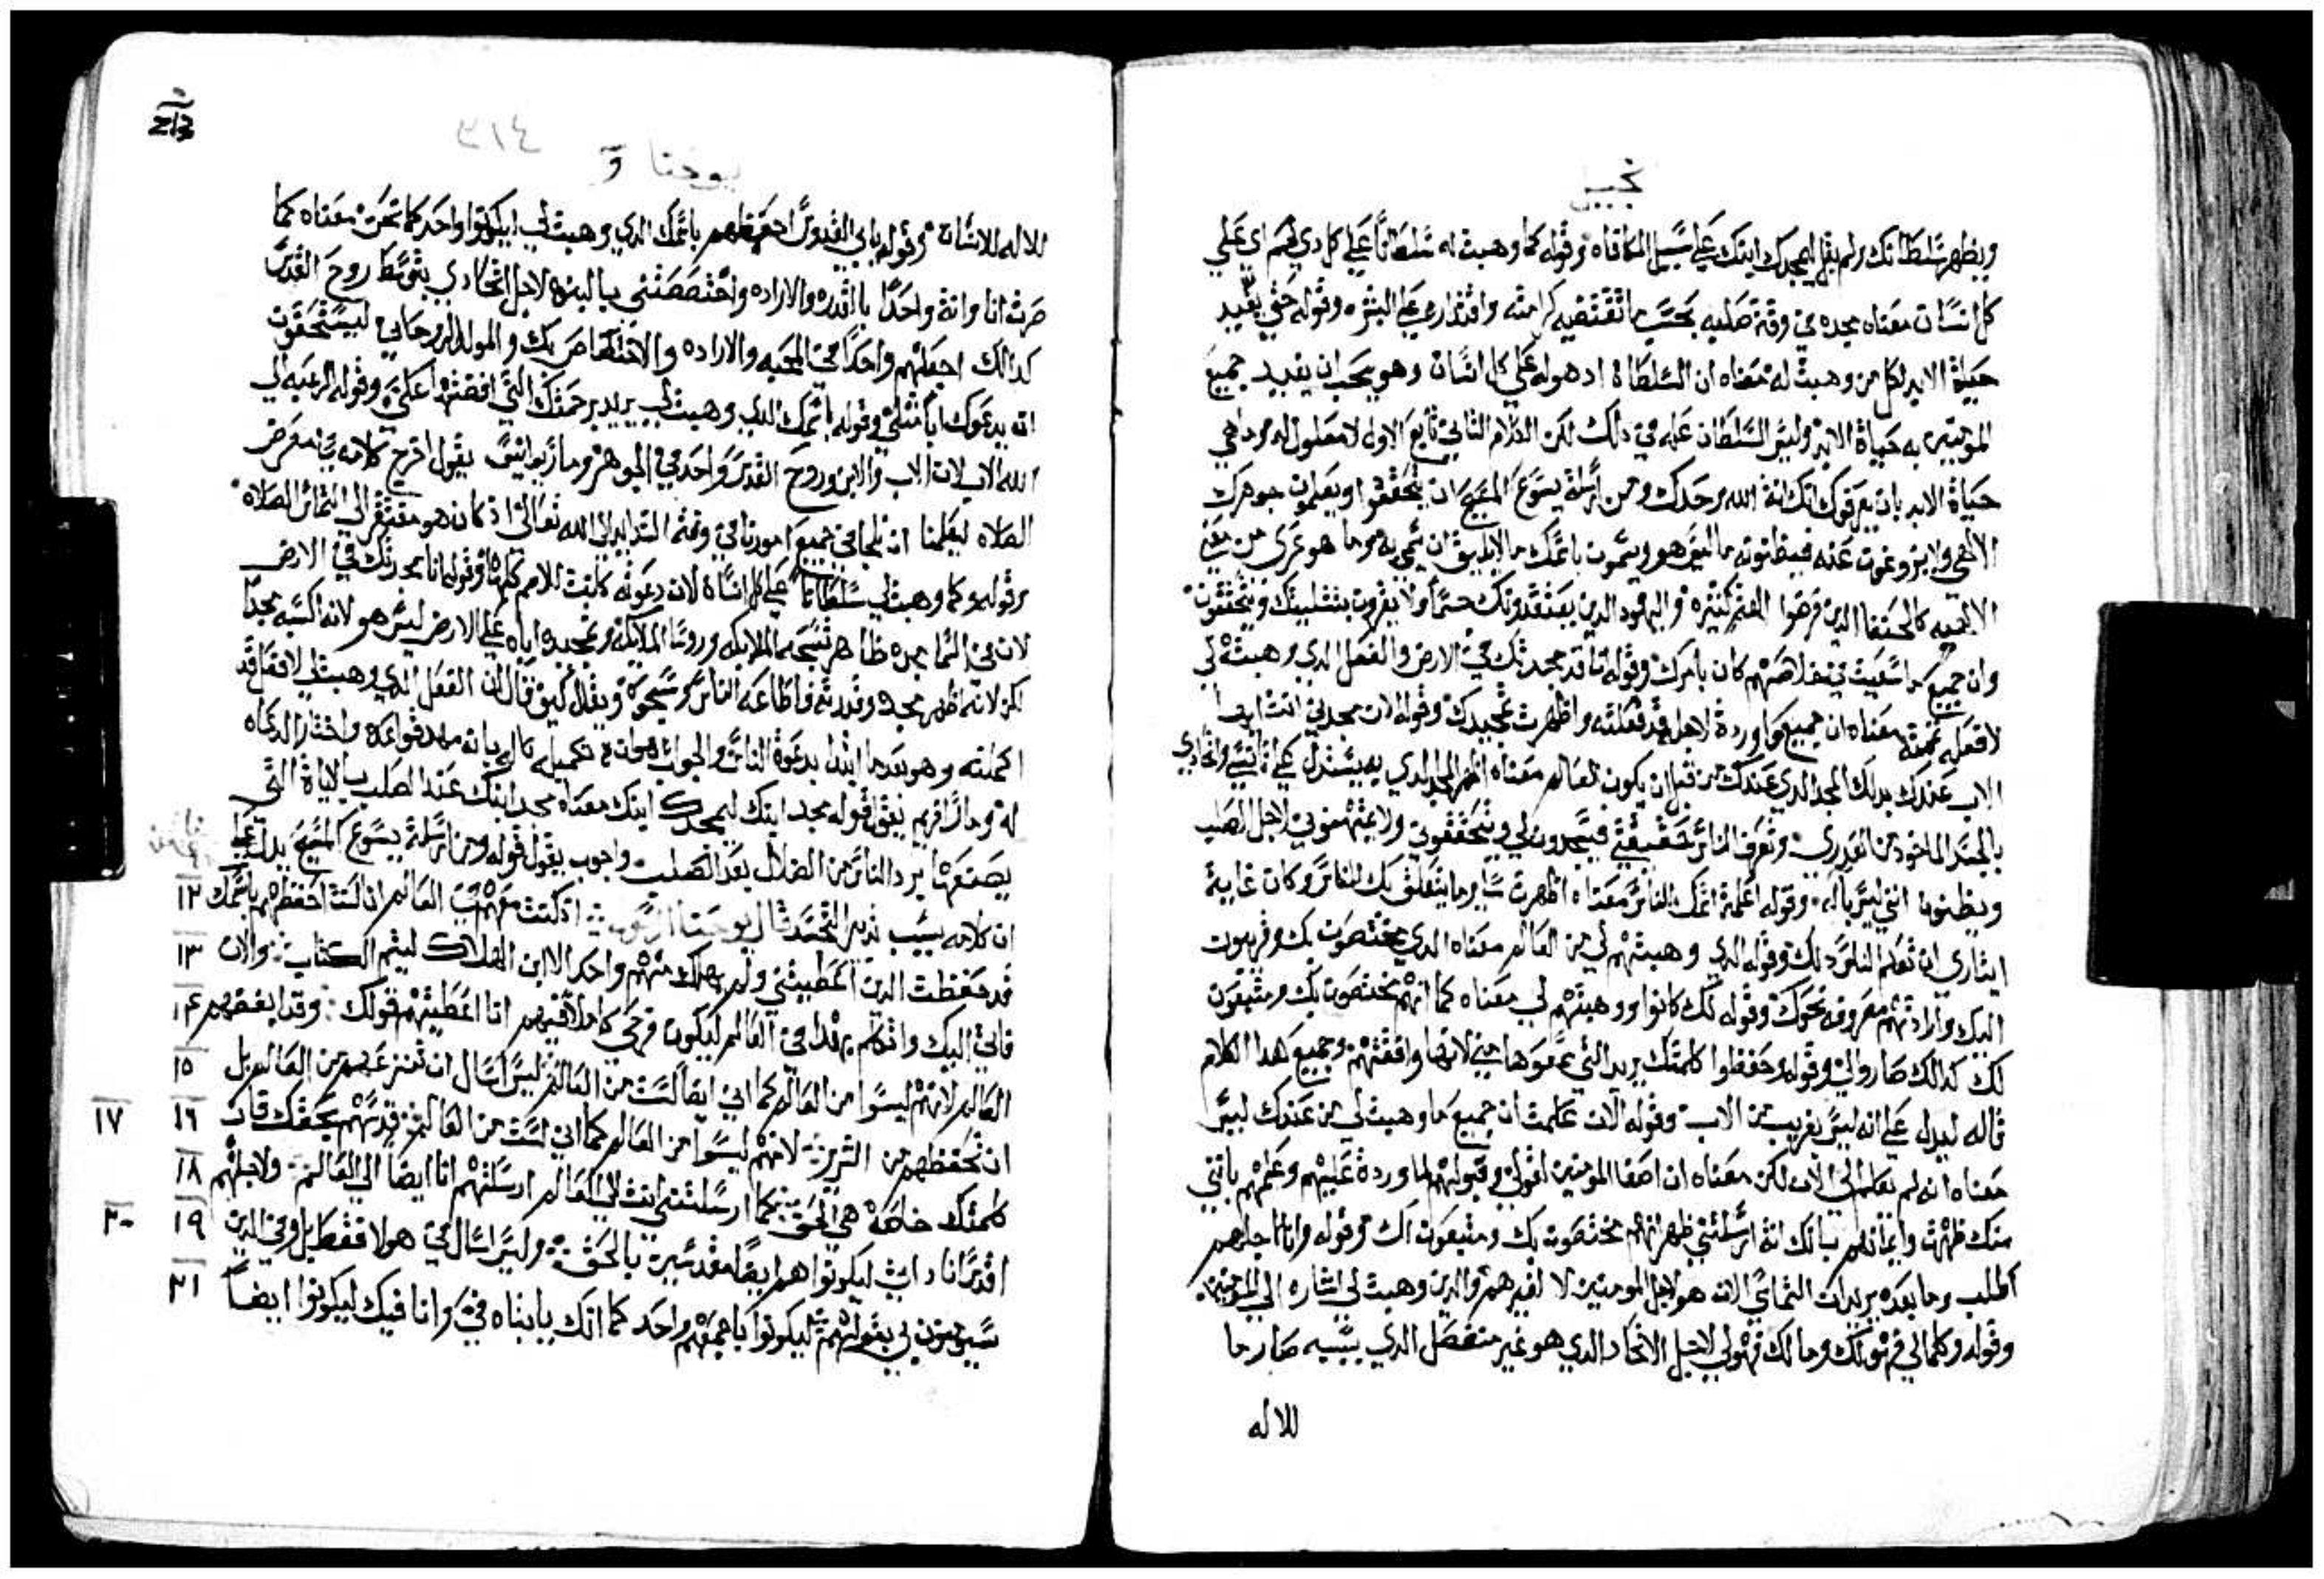 نجيل
ويظهر سلطانك ولم يقل ليمجدك ابنك علي سبيل المكافاه وقوله كما وهبت له سلطانًا علي كل دي لحم اي علي
كل انسان معناه مجده في وقت صلبه بحسب ما تقتضيه كرامته واقتداره علي البشره وقوله حتي يفيد
حياة الابد لكل من وهبت له معناه ان السلطان اد هو له علي كل انسان وهو يحب ان يفيد جميع
المومنين به حياة الابد وليس السلطان عله في دلك لكن الكلام التاني تابع الاول لا معلول له وما هي
حياة الابد بان يعرفوك انك انت الله وحدك ومن ارسلته يسوع المسيح ان يتحققوا ويعلمون جوهرك
الالهي ولا يزوغون عنه فيظنونه ما ليس هو ويسمون باسمك ما لا يليق ان يسمي به وما هو عري من
الالهيه كالحنفا الدين فرضوا الهه كتيره واليهود الدين يعتقدونك جسمًا ولا يقرون بتتليتك ويتحققون
وان جميع ما سعيت في خلاصهم كان بامرك وقوله انا قد مجدتك في الارض والفعل الدي وهبته لي
لافعله تممته معناه ان جميع ما وردة لاجله قد فعلته واظهرت تمجيدك وقوله الان مجدني انت ايضا
الاب عندك بدلك المجد الدي عندك من قبل ان يكون العالم معناه اظهر المجد الدي به يستدل علي واتحادي
بالجسد الماخود من وتعرف الناس حقيقتي فيسجدون لي ويتحققوني ولا يمتهنوني لاجل الصلب
ويظنوا انني ليس باله وقوله اعلمة اسمك للناس معناه اظهرت ساير ما يتعلق بك للناس وكان غاية
ايتاري ان تعلم الناس دلك وقوله الدي وهبتهم لي من العالم معناه الدي يختصون بك وقريبون
اليك وارادتهم معروفه نحوك وقوله لك كانوا ووهبتهم لي معناه كما انهم يختصون بك ومتبعون
لك كدالك صاروا لي وقوله وحفظوا كلمتك يريد التي سمعوها مني لانها وافقتهم وجميع هدا الكلام
قاله ليدل علي انه ليس بغريب من الاب وقوله الان علمت ان جميع ما وهبت لي من عندك ليس
معناه انه لم يعلم الي الان لكن معناه ان اصغا المومنين لقولي وقبولهم لما وردة عليهم وعلمهم بانني
منك ظهرت وايمانهم بانك انت ارسلتني ظهر انهم مختصون بك ومتبعون لك وقوله وانا اجلهم
اطلب وما بعده يريد ان التماسي الان هو لاجل المومنين لا لغيرهم والدين وهبت لي اشاره الي المومنين
وقوله وكلما لي فهو لك وما لك فهو لي لاجل الاتحاد الدي هو غير منفصل الدي بسببه صار ما
للاله
يوحنا
٣١٤
للاله للانسان وقوله يا ابي القدوس احفظهم باسمك الدي وهبت لي ليكونوا واحد كما نحن معناه كما
صرت انا وانت واحدًا بالقدره والاراده واختصصتني بالبنوه لاجل اتحادي بتوسط روح القدس
كدالك اجعلهم واحدًا في المحبه والاراده والاختصاص بك والمولد الروحاني ليستحقون
ان يدعوك ابًا متلي وقوله باسمك الدي وهبت لي يريد برحمتك التي افضتها علي وقوله
الله الاب لان الاب والابن وروح القدس واحد في الجوهر ومار يوانيس يقول اخرج كلامه في معرض
الصلاه ليعلمنا ان نلجا في جميع امورنا في وقت الشدايد الي الله تعالي اد كان هو مفتقر الي التماس الصلاه
وقوله وكما وهبت لي سلطانًا علي كل انسان لان دعوته كانت للامم كلها وقوله انا مجدتك في الارض
لان في السما مجده ظاهر تسبحه الملايكه وروسا الملايكه وتمجيده اياه علي الارض ليس هو لانه اكسبه مجدا
لكن لانه اظهر مجده وقدرته فاطاعه الناس وسبحوه ويقال كيف قال ان الفعل الدي وهبت لي لافعل قد
اكملته وهو بعد ما ابتدا بدعوة الناس والجواب هو ان تكميله كان بانه مهد قواعده واختار الدعاه
له ومار افريم يقول قوله مجد ابنك ليمجدك ابنك معناه مجد ابنك عند الصلب بالاياة التي
يصنعها برد الناس من الضلال بعد الصلب واجوب يقول قوله ومن ارسلته يسوع المسيح يدل علي
ان كلامه بسبب تدبير التجسد قال يوحنا الرسول اد كنت معهم في العالم انا كنت احفظهم باسمك ١٢
قد حفظت الدين اعطيتني ولم يهلك منهم واحد الا ابن الهلاك ليتم الكتاب والان ١٣
فاني اليك واتكلم بهدا في العالم ليكون فرحي كاملا فيهم انا اعطيتهم قولك وقد ابغضهم ١٤
العالم لانهم ليسوا من العالم كما اني ايضا لست من العالم ليس اسال ان تنزعهم من العالم بل ١٥
ان تحفظهم من الشرير لانهم ليسوا من العالم كما اني لست من العالم قدسهم بحقك فان ١٦ ١٧
كلمتك خاصة هي الحق كما ارسلتني انت الي العالم ارسلتهم انا ايضا الي العالم ولاجلهم ١٨
اقدس انا داتي ليكونوا هم ايضًا مقدسين بالحق وليس اسال في هولا فقط بل وفي الدين ١٩ ٢٠
سيومنون لي بقولهم ليكونوا باجمعهم واحد كما انك يا ابتاه في وانا فيك ليكونوا ايضًا ٢١